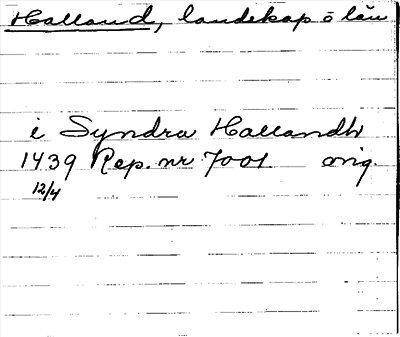 Halland, landskap o län
i Syndra Hallandh
1439 Rep. nr 7001 orig.
12/4